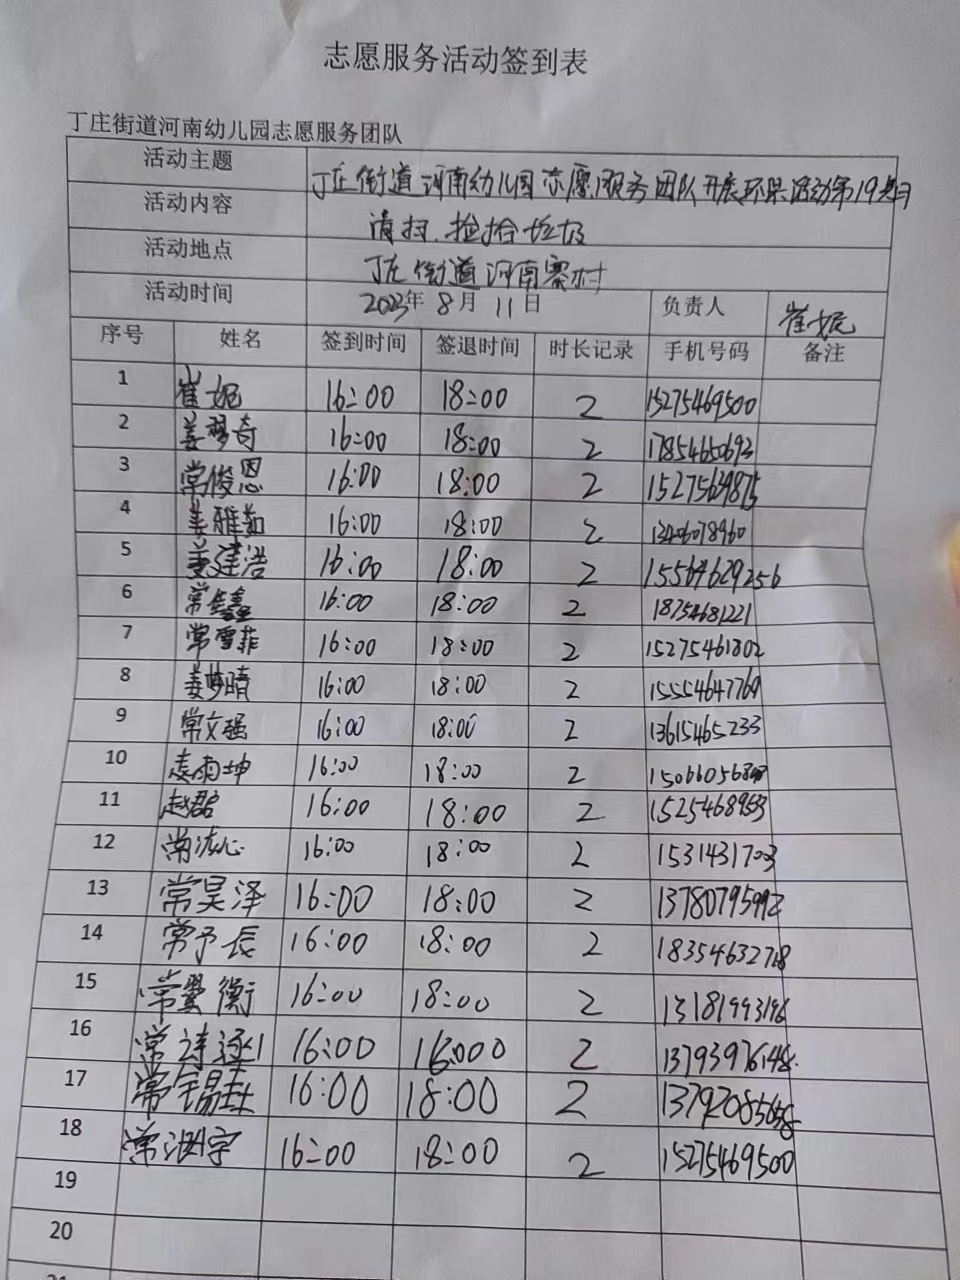 志愿服务活动签到表
丁庄街道河南幼儿园志愿服务团队
活动主题 丁庄街道河南幼儿园志愿服务团队开展环保活动第19期
活动内容 清扫、捡拾垃圾
活动地点 丁庄街道河南寨村
活动时间 2023年8月11日 负责人 崔妮
序号 姓名 签到时间 签退时间 时长记录 手机号码 备注
1 崔妮 16:00 18:00 2 15275469500
2 姜梦奇 16:00 18:00 2 17854650693
3 常俊恩 16:00 18:00 2
4 姜雅茹 16:00 18:00 2 13406078960
5 姜建浩 16:00 18:00 2 15564629256
6 常鑫 16:00 18:00 2 18754681221
7 常雪菲 16:00 18:00 2 15275461802
8 姜梦晴 16:00 18:00 2 15554647760
9 常文强 16:00 18:00 2 13615465233
10 雨坤 16:00 18:00 2
11 赵君 16:00 18:00 2
12 常沁心 16:00 18:00 2 1531431703
13 常昊泽 16:00 18:00 2
14 常予辰 16:00 18:00 2
15 常翼衡 16:00 18:00 2 13181993196
16 常诗 16:00 16:000 2 13793976148
17 常锡 16:00 18:00 2
18 常润宇 16:00 18:00 2 15275469500
19
20